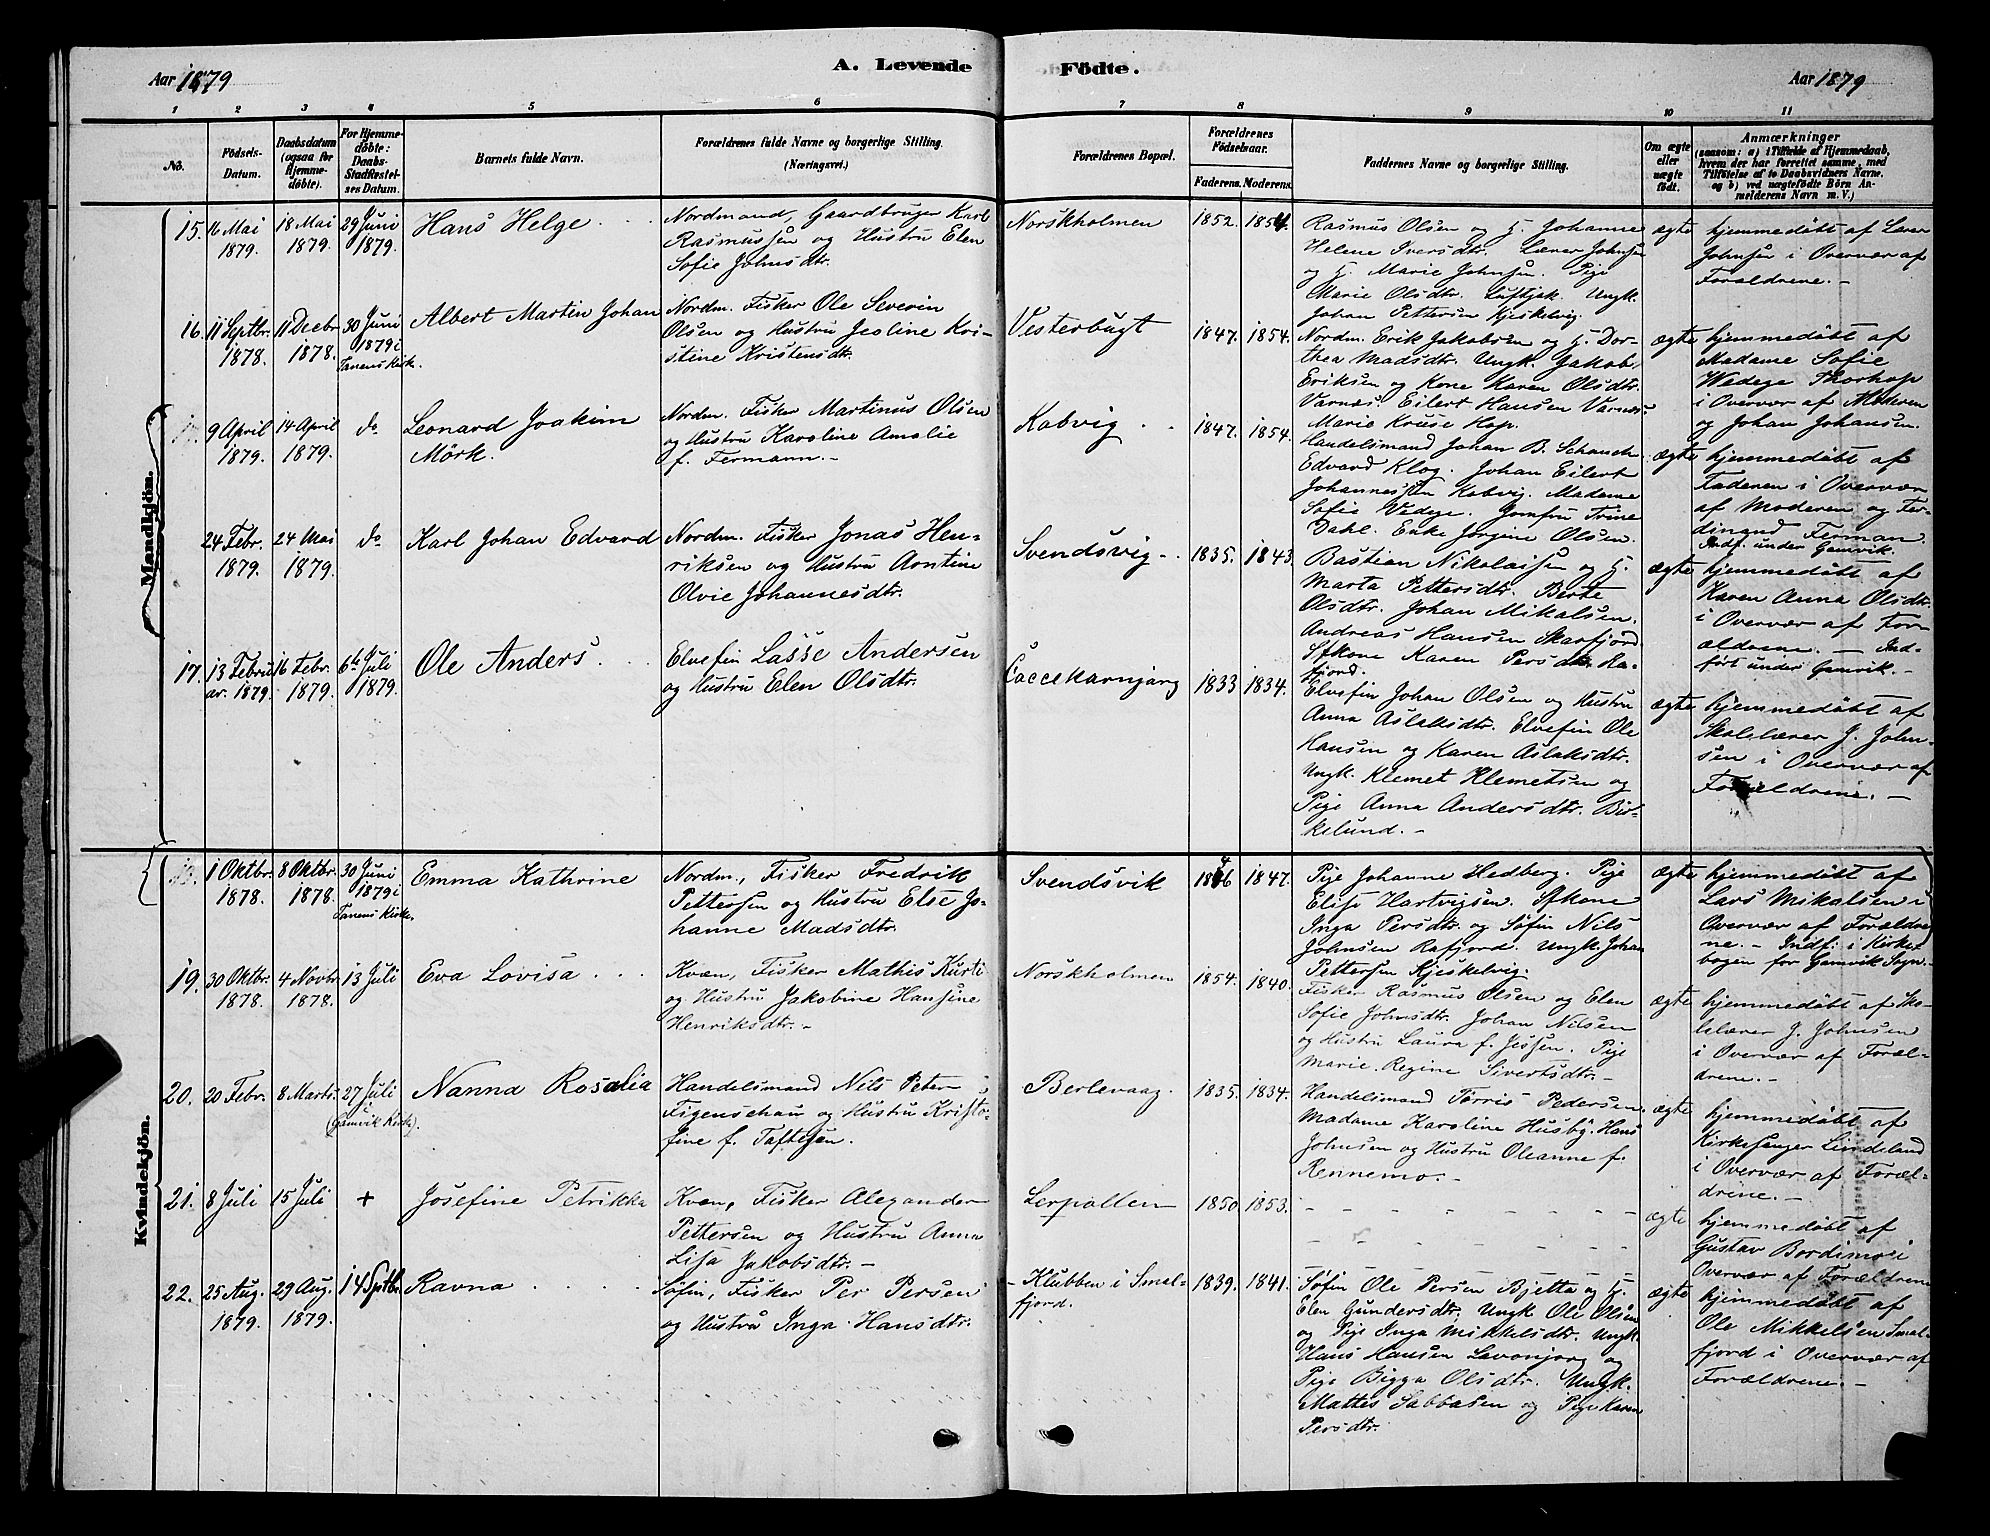 Aar 1879
A. Levende Födte.
Aar 1879
1 2 3 4 5 6 7 8 9 10 11
No.
Födsels-Datum.
Daabsdatum (ogsaa for Hjemmedöbte).
For Hjemmedöbte: Daabs-Stadfæstelses Datum.
Barnets fulde Navn.
Forældrenes fulde Navne og borgerlige Stilling. (Næringsvei.)
Forældrenes Bopæl.
Forældrenes Födselsaar.
Faderens. Moderens.
Faddernes Navne og borgerlig Stilling.
Om ægte eller uægte födt.
Anmærkninger
(saasom: a) i Tilfælde af Hjemmedaab, hvem der har forrettet samme, med Tilföielse af to Daabsvidners Navne, og b) ved uægtefödte Börn Anmelderens Navn m. V.)
Mandkjön.
15. 16 Mai 1879. 18 Mai 1879. 29 Juni 1879.
Hans Helge
Nordmand, Gaardbruger Karl
Rasmussen og Hustru Elen
Sofie Johnsdtr.
Norskholmen 1852. 1854.
Rasmus Olsen og H. Johanne
Helene Iversdtr. Lærer Johnsen
og H. Marie Johnsen. Pige
Marie Olsdtr. Luftjok. Ungk.
Johan Pettersen Kjeskelvig.
ægte
hjemmedöbt af Lærer
Johnsen i Overvær af
Forældrene. —
16. 11 Septbr. 1878. 11 Decbr. 1878. 30 Juni 1879 i Tanens Kirke.
Albert Martin Johan
Nordm. Fisker Ole Severin
Olsen og Hustru Jeoline Kri-
stine Kristensdtr.
Vesterbugt 1847. 1854.
Nordm. Erik Jakobsen og H. Dor-
thea Madsdtr. Ungk. Jakob
Eriksen og Kone Karen Olsdtr.
Varnæs. Eilert Hansen Varnæs.
Marie Kruse Hop.
ægte
hjemmedöbt af
Madame Sofie
Wedege Thorhop
i Overvær af Moderen
og Johan Johansen.
9 April 1879. 14 April 1879. do
Leonard Joakim
Mörk.
Nordm. Fisker Martinus Olsen
og Hustru Karoline Amalie
f. Fermann. —
Kobvig 1847. 1854.
Handelsmand Johan B. Schanch.
Edvard Klog. Johan Eilert
Johannessen Kobvig. Madame
Sofie Wedege. Jomfru Trine
Dahl. Enke Jörgine Olsen.
ægte
hjemmedöbt af
Faderen i Overvær
af Moderen og Fer-
dinand Ferman.
Indf. under Gamvik.
24 Febr. 1879. 24 Mai 1879. do
Karl Johan Edvard
Nordm. Fisker Jonas Hen-
riksen og Hustru Arntine
Olvie Johannesdtr.
Svendsvig 1835. 1843.
Bastian Nikolaisen og H.
Marta Pettersdtr. Berte
Olsdtr. Johan Mikalsen.
Andreas Hansen Skarfjord.
Sfkone Karen Persdtr. Ra-
fjord.
ægte
hjemmedöbt af
Karen Anna Olsdtr.
i Overvær af For-
ældrene. — Ind-
fört under Gamvik. —
17. 13 Februar. 1879. 16 Febr. 1879. 6te Juli 1879.
Ole Anders
Elvefin Lasse Andersen
og Hustru Elen Olsdtr.
Caccekarnjarg 1833 1834.
Elvefin Johan Olsen og Hustru
Anna Aslaksdtr. Elvefin Ole
Hansen og Karen Aslaksdtr.
Ungk. Klemet Klemetsen og
Pige Anna Andersdtr. Bir-
kelund. —
ægte
hjemmedöbt af
Skolelærer J. John-
sen i Overvær af
Forældrene. —
Kvindekjön.
1 Oktbr. 1878. 8 Oktbr. 1878. 30 Juni 1879 i Tanens Kirke.
Emma Kathrine
Nordm., Fisker Fredrik
Pettersen og Hustru Else Jo-
hanne Madsdtr.
Svendsvik 1846 1847.
Pige Johanne Hedberg. Pige
Elise Hartvigsen. Sfkone
Inga Persdtr. og Söfin Nils
Johnsen Rafjord. Ungk. Johan
Pettersen Kjeskelvig.
ægte
hjemmedöbt af
Lars Mikalsen i
Overvær af Forældre-
ne. — Indf. i Kirke-
bogen for Gamvik Sogn.
19. 30 Oktbr. 1878. 4 Novbr. 1878. 13 Juli
Eva Lovisa
Kvæn, Fisker Mathis Kurti
og Hustru Jakobine Hansine
Henriksdtr. —
Norskholmen 1854. 1840.
Fisker Rasmus Olsen og Elen
Sofie Johnsdtr. Johan Nilsen
og Hustru Laura f. Jessen. Pige
Marie Regine Sivertsdtr. —
ægte
hjemmedöbt af Sko-
lelærer J. Johnsen
i Overvær af Foræl-
drene. —
20. 20 Febr. 8 Marts. 27 Juli i (Gamvik Kirke).
Nanna Rosalia
Handelsmand Nils Peter
Figenschau og Hustru Kristo-
fine f. Taftesen.
Berlevaag 1835. 1834.
Handelsmand Törris Pedersen.
Madame Karoline Husby. Hans
Johnsen og Hustru Oleanne f.
Rennemo. —
ægte
hjemmedöbt af
Kirkesanger Lindeland
i Overvær af Foræl-
drene. —
21. 8 Juli 15 Juli +
Josefine Petrikka
Kvæn, Fisker Alexander
Pettersen og Hustru Anna
Lisa Jakobsdtr. —
Lerpollen 1850 1853.
ægte
hjemmedöbt af
Gustav Bordimoe i
Overvær af Forældrene
22. 25 Aug. 1879. 29 Aug. 1879. 14 Septbr.
Ravna
Söfin, Fisker Per Persen
og Hustru Inga Hansdtr.
Klubben i Smal-
fjord. 1839. 1841.
Söfin Ole Persen Bjetta og H.
Elen Gundersdtr. Ungk Ole Olsen
og Pige Inga Mikkelsdtr. Ungk.
Hans Hansen Lavonjorg og
Pige Bigga Olsdtr. Ungk.
Mattis Sabbasen og Pige Karen
Persdtr.
ægte
hjemmedöbt af
Ole Mikkelsen Smal-
fjord i Overvær af
Forældrene. —